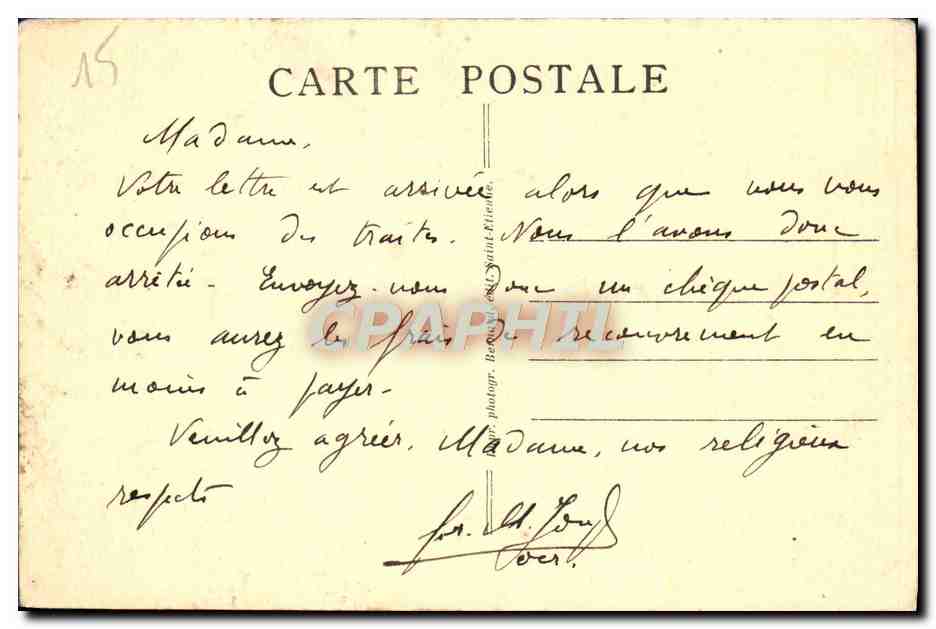 15
CARTE POSTALE
Madame,
Votre lettre est arrivée alors que nous nous
occupions des traites. Nous l'avons donc
arrêtée. Envoyez-nous donc un chèque postal,
vous aurez les frais de recouvrement en
moins à payer.
Veuillez agréer, Madame, nos religieux
respects
photogr. édit. Saint-Etienne.
CPAPHIL